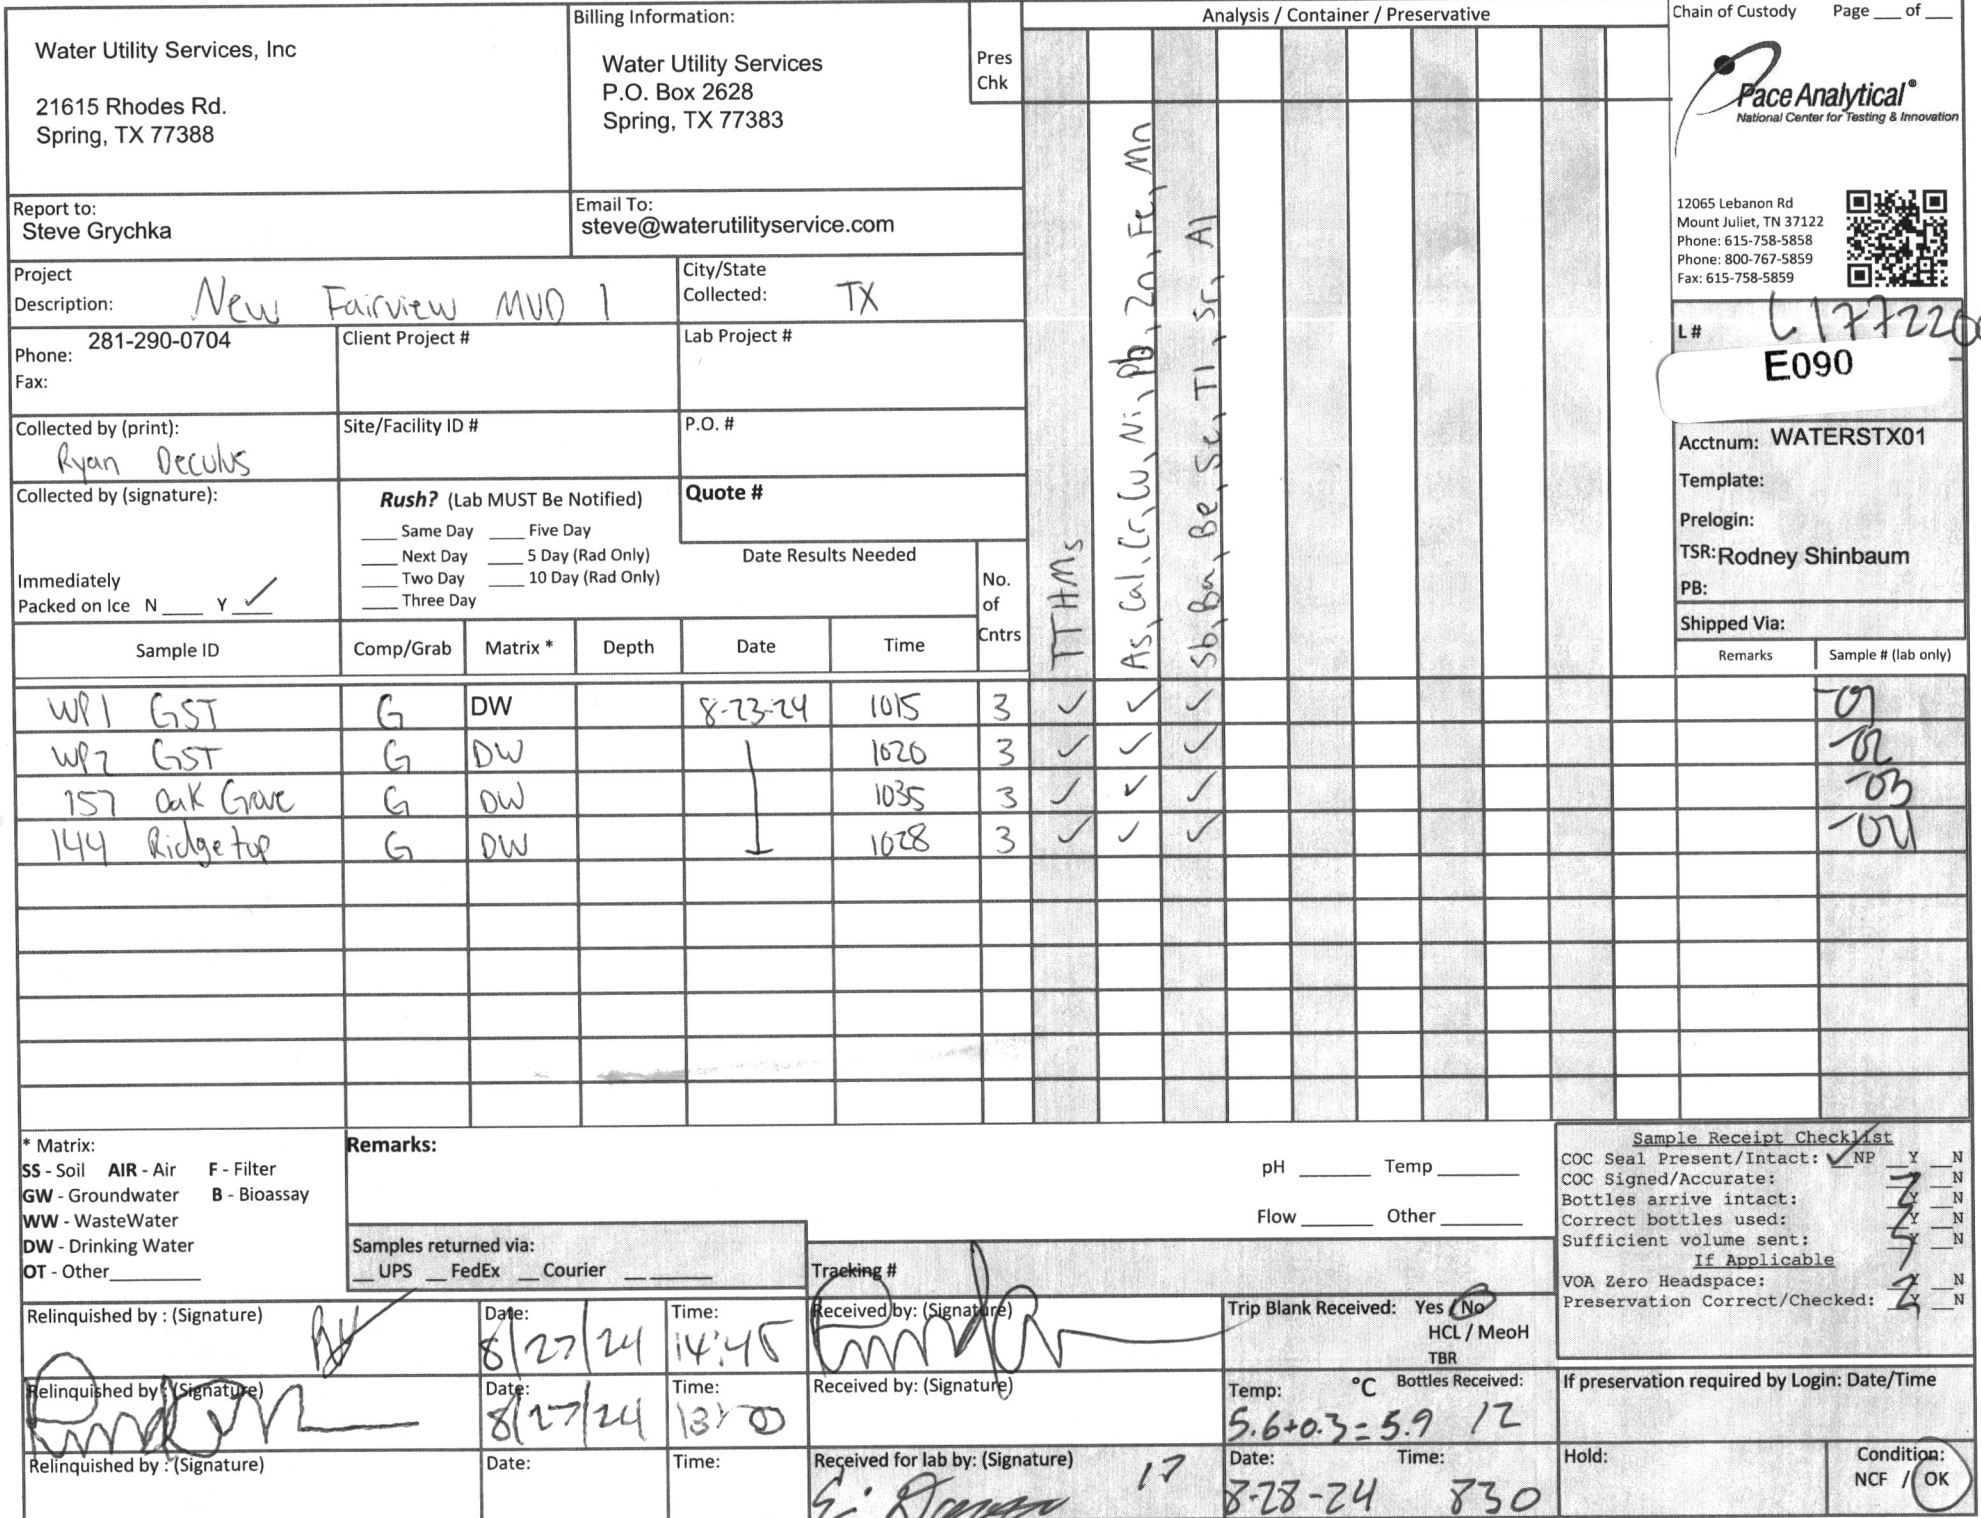 Water Utility Services, Inc
21615 Rhodes Rd.
Spring, TX 77388
Billing Information:
Water Utility Services
P.O. Box 2628
Spring, TX 77383
Pres
Chk
Analysis / Container / Preservative
Chain of Custody Page ___ of ___
Pace Analytical®
National Center for Testing & Innovation
12065 Lebanon Rd
Mount Juliet, TN 37122
Phone: 615-758-5858
Phone: 800-767-5859
Fax: 615-758-5859
Report to:
Steve Grychka
Email To:
steve@waterutilityservice.com
Project
Description: New Fairview MUD 1
City/State
Collected: TX
Phone: 281-290-0704
Fax:
Client Project #
Lab Project #
L# L177220
E090
Collected by (print):
Ryan Deculus
Site/Facility ID #
P.O. #
Acctnum: WATERSTX01
Template:
Prelogin:
TSR: Rodney Shinbaum
PB:
Shipped Via:
Collected by (signature):
Immediately
Packed on Ice N ___ Y ✓
Rush? (Lab MUST Be Notified)
___ Same Day ___ Five Day
___ Next Day ___ 5 Day (Rad Only)
___ Two Day ___ 10 Day (Rad Only)
___ Three Day
Quote #
Date Results Needed
No.
of
Cntrs
TTHMs
As, Cal, Cr, Cu, Ni, Pb, Zn, Fe, Mn
Sb, Ba, Be, Se, Tl, Sr, Al
Sample ID Comp/Grab Matrix * Depth Date Time Remarks Sample # (lab only)
WP1 GST G DW 8-23-24 1015 3 ✓ ✓ ✓ -01
WP2 GST G DW 1020 3 ✓ ✓ ✓ -02
157 Oak Grove G DW 1035 3 ✓ ✓ ✓ -03
144 Ridgetop G DW 1028 3 ✓ ✓ ✓ -04
* Matrix:
SS - Soil AIR - Air F - Filter
GW - Groundwater B - Bioassay
WW - WasteWater
DW - Drinking Water
OT - Other
Remarks:
pH ___ Temp ___
Flow ___ Other ___
Samples returned via:
__ UPS __ FedEx __ Courier __ ___
Tracking #
Sample Receipt Checklist
COC Seal Present/Intact: ✓ NP _Y _N
COC Signed/Accurate: _Y _N
Bottles arrive intact: _Y _N
Correct bottles used: _Y _N
Sufficient volume sent: _Y _N
If Applicable
VOA Zero Headspace: _Y _N
Preservation Correct/Checked: _Y _N
Relinquished by : (Signature)
Date: 8/27/24
Time: 14:45
Received by: (Signature)
Trip Blank Received: Yes / No
HCL / MeoH
TBR
Relinquished by : (Signature)
Date: 8/27/24
Time: 13:00
Received by: (Signature)
Temp: °C Bottles Received:
5.6+0.3=5.9 12
If preservation required by Login: Date/Time
Relinquished by : (Signature)
Date:
Time:
Received for lab by: (Signature)
Date: 8-28-24
Time: 830
Hold:
Condition:
NCF / OK